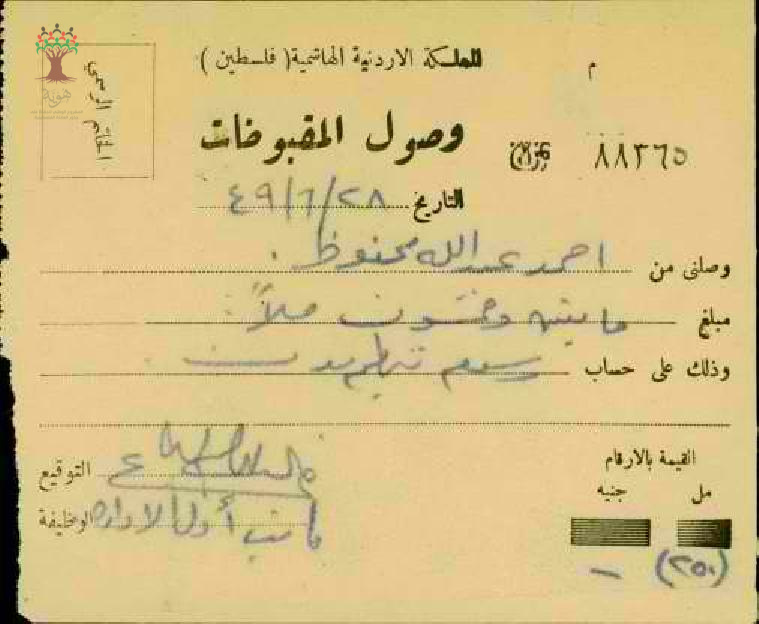 المملكة الاردنية الهاشمية ( فلسطين )
م
هوية
الخاتم الرسمي
وصول المقبوضات
نمرة ٨٨٣٦٥
التاريخ ٢٨/٦/٤٩
وصلنى من احمد عبدالله محفوظ .
مبلغ مايتين وخمسون ملاً
وذلك على حساب رسوم
القيمة بالارقام
مل جنيه
(٢٥٠) —
التوقيع
الوظيفة كاتب أول الادارة